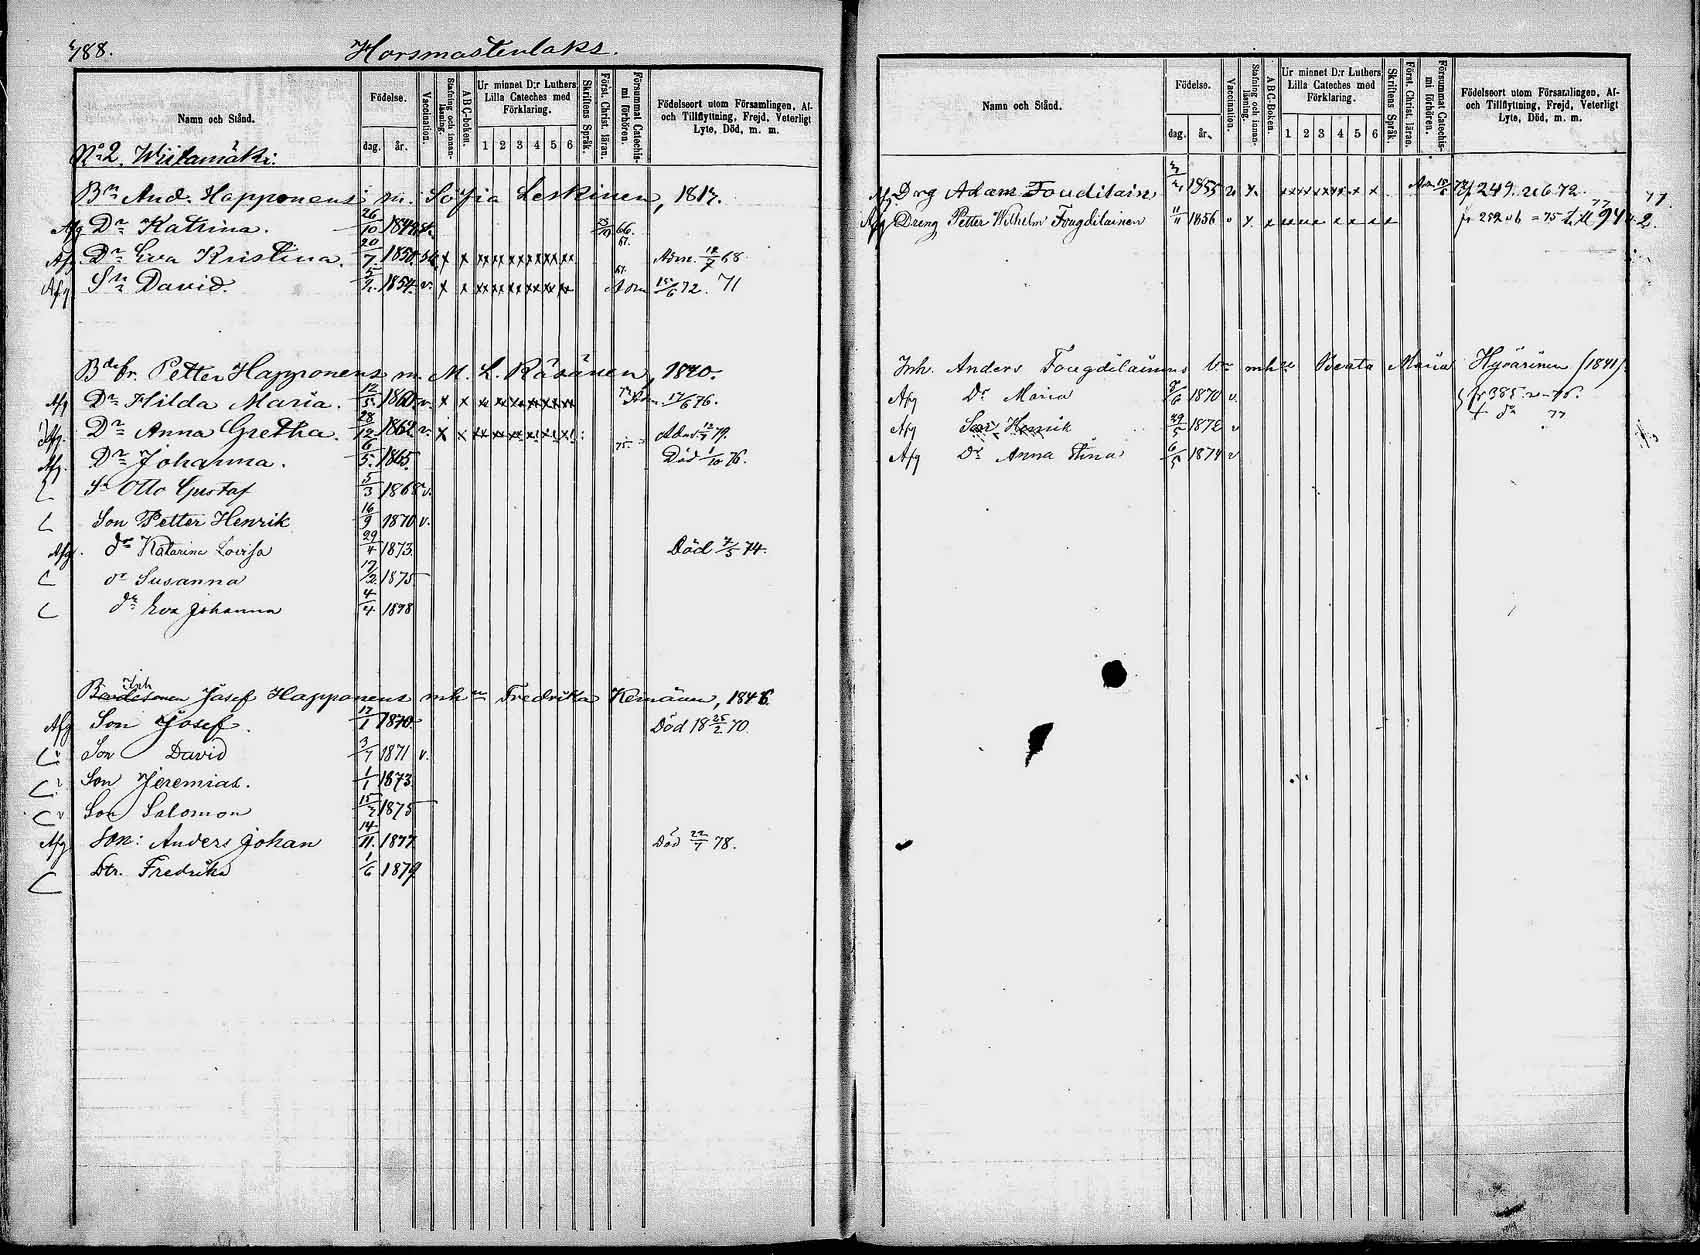 188. Horsmastenlaks.
Namn och Stånd.
Födelse.
dag. år.
Vaccination.
Stafning och innanläsning.
ABC-boken.
Ur minnet D:r Luthers Lilla Cateches med Förklaring.
1 2 3 4 5 6
Skriftens Språk.
Först. Christ. läran.
Försummat Catechismi förhören.
Födelseort utom Församlingen, Af- och Tillflyttning, Frejd, Veterligt Lyte, Död, m. m.
No 2. Wiitamäki.
Bn And. Happonens m. Sofia Leskinen, 1817.
Afg Dr Katrina. 26/10 66.
Afg Dr Eva Kristina. 20/7 1850. x x xx xx xx xx xx xx 61. Adm. 12/7 68
Afg Sn David. 1854. v. x x xx xx xx xx xx xx 61. Adm 15/6 72. 71
Petter Happonens m. M. L. Räsänen, 1840.
Afg Dr Hilda Maria. 12/5 1860. v. x x 17/6 76.
Afg. Dr Anna Gretha. 28/12 1862 v. x x 79.
Afg. Dr Johanna. 6/5. 1865. 75. Död 1/10 76.
Sn Otto Gustaf 5/3 1868 v.
Son Petter Henrik 16/9 1870 v.
Afg. dr Katarina Lovisa 29/4 1873. Död 7/5 74.
dr Susanna 17/2 1875
dr Eva Johanna 4/4 1878
Inh
Josef Happonens mh Fredrika 1846.
Afg Son Josef. 17/1 1870. Död 18 25/2 70.
Son David 3/7 1871 v.
Son Jeremias. 1/1 1873.
Son Salomon 1875
Afg Son: Anders Johan 14/11. 1877. Död 22/7 78.
Dtr. Fredrika 1/6 1879.
Namn och Stånd.
Födelse.
dag. år.
Vaccination.
Stafning och innanläsning.
ABC-Boken.
Ur minnet D:r Luthers Lilla Cateches med Förklaring.
1 2 3 4 5 6
Skriftens Språk.
Först. Christ. läran.
Försummat Catechismi förhören.
Födelseort utom Församlingen, Af- och Tillflyttning, Frejd, Veterligt Lyte, Död, m. m.
Afg Drg Adam Fouditain 1855 249. 72.
Afg Dreng Petter Wilhelm Fougdilainen 11/11 1856 v x x 75
Inh. Anders Fougdilainens mh Beata Maria Hyvärinen (1841).
Afg Dr Maria 1870 v. fr 385
Afg Son Henrik 29/5 v
Afg Dr Anna Stina 6/5 1874 v